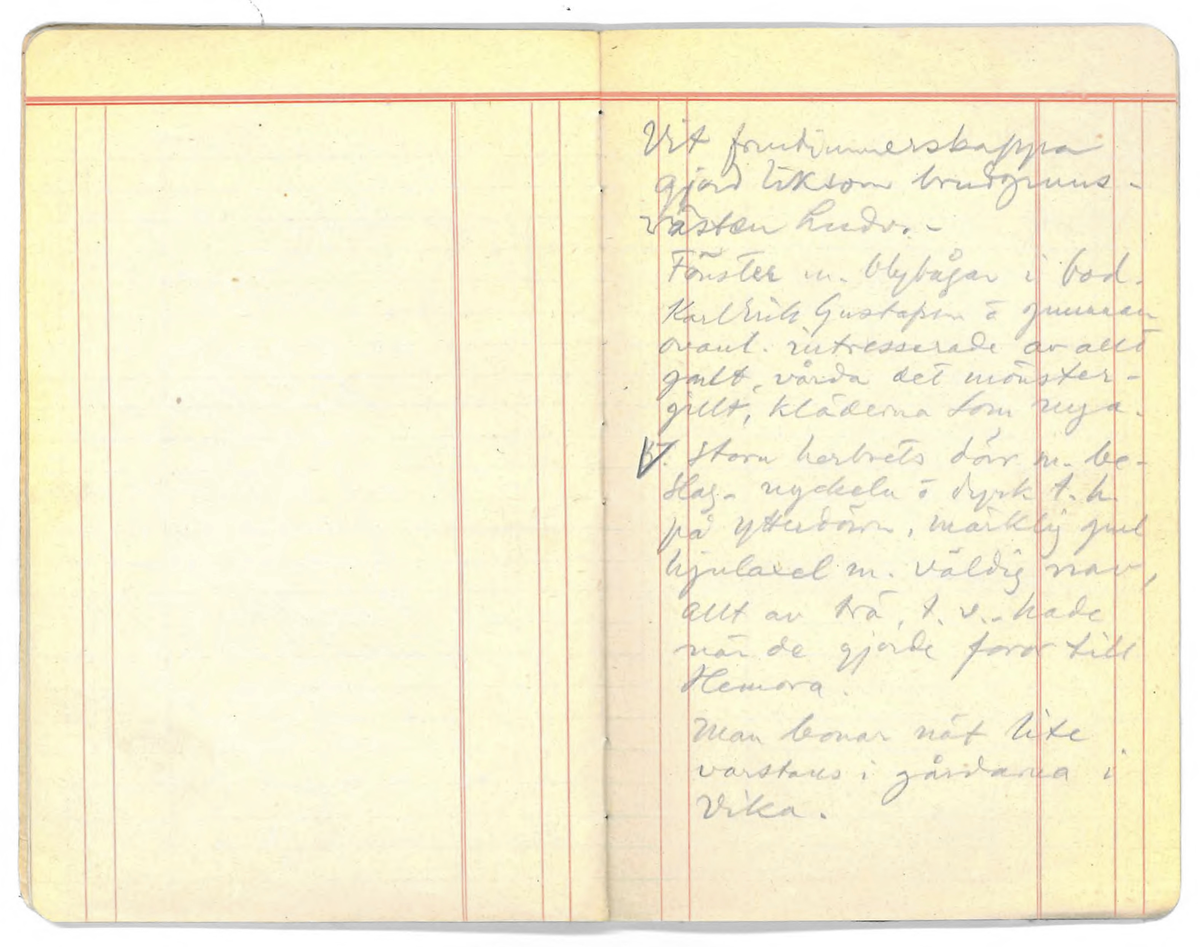 Vit fruntimmerskappa
gjord liksom brudgums-
västen
Fönster m. blybågar i bod.
Karl Erik Gustafson o gumman
ovanl. intresserade av allt
gmlt, vårda det mönster-
gillt, kläderna som nya.
Stora herbrets dörr m. be-
slag. nyckeln o dyrk t. h.
på ytterdörrn, märklig gml
hjulaxel m. väldig nav,
allt av trä, t. v. hade
när de gjorde foror till
Hemora.
Man bonar nät lite
varstans i gårdarna i
Vika.